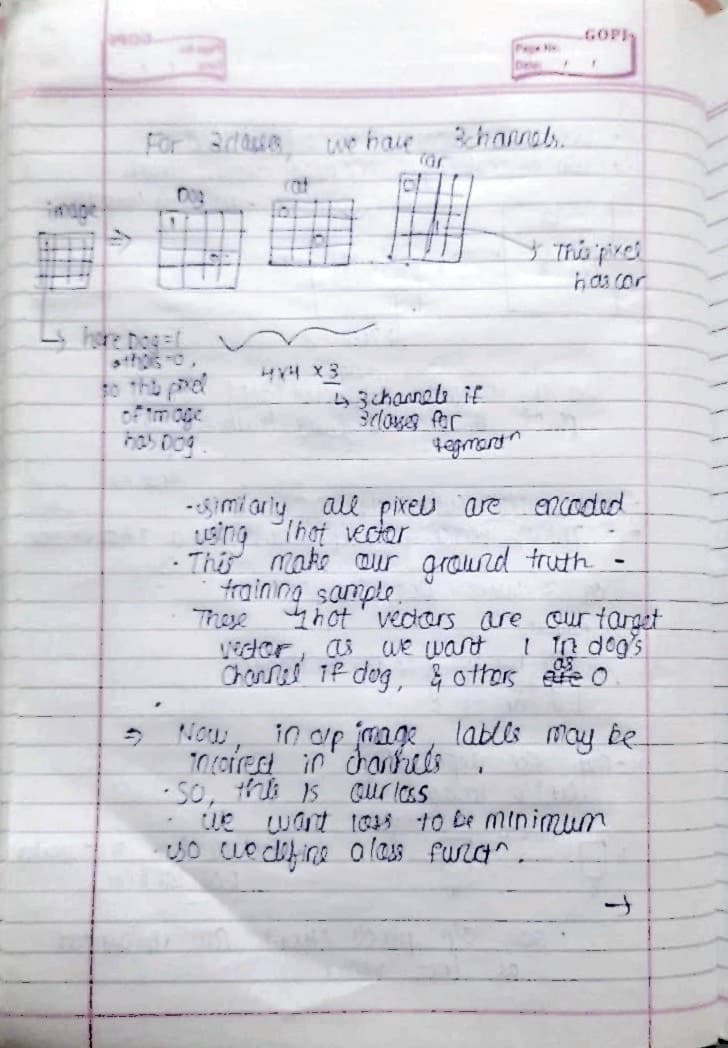 GOPI
Page No.
Date: / /
For 3 classes, we have 3 channels.
image
Dog
cat
car
1
0
0
0
0
This pixel
has car
here Dog = 1
others = 0,
so this pixel
of image
has Dog.
4x4 x 3
3 channels if
3 classes for
segmentn
- similarly all pixels are encoded
using 1hot vector
• This make our ground truth -
training sample.
These 1hot vectors are our target
vector, as we want 1 in dog's
channel if dog, & others as 0.
⇒ Now, in o/p image, lables may be
incorrect in channels.
• So, this is our loss
• we want loss to be minimum
• so we define a loss functn.
→